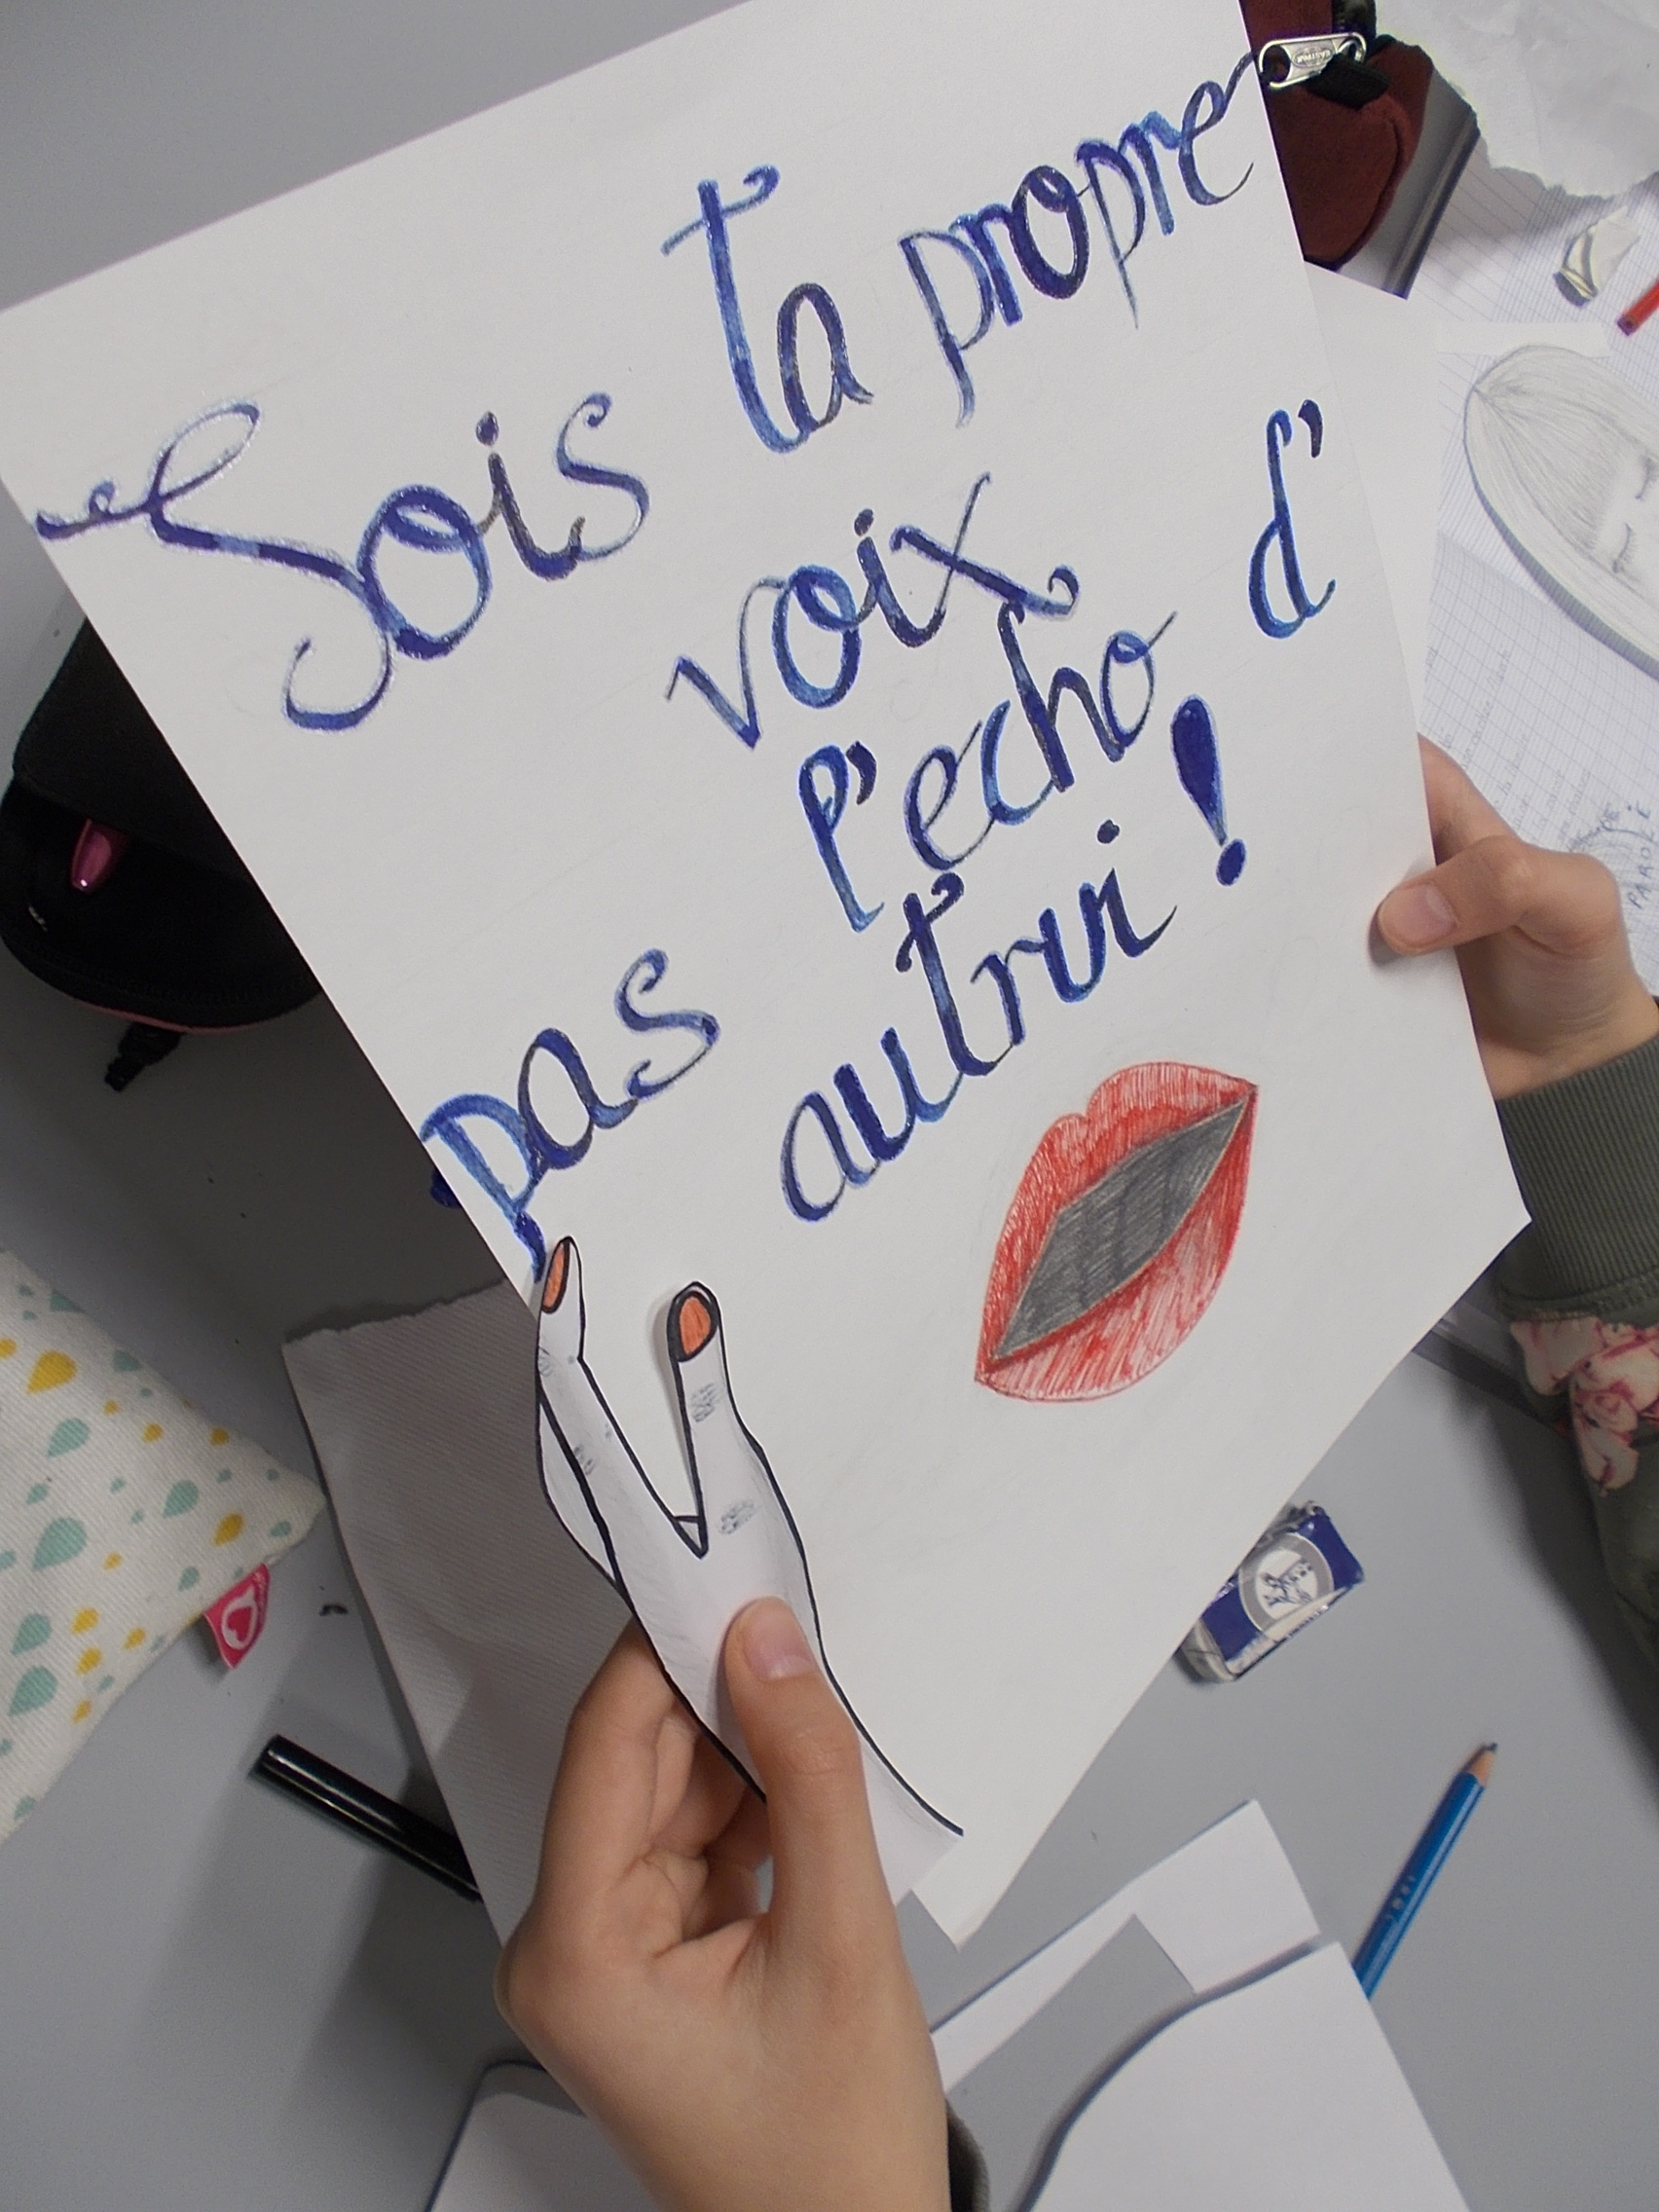 Sois ta propre
voix
pas l'echo d'
autrui !
PAROLE